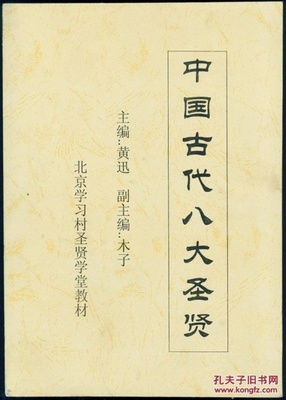 中国古代八大圣贤
主编：黄迅 副主编：木子
北京学习村圣贤学堂教材
孔夫子旧书网
www.kongfz.com